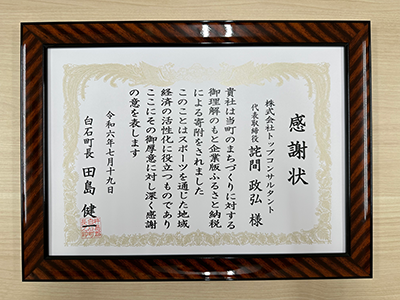 感謝状
株式会社トップコンサルタント
代表取締役 詫間 政弘 様
貴社は当町のまちづくりに対する
御理解のもと企業版ふるさと納税
による寄附をされました
このことはスポーツを通じた地域
経済の活性化に役立つものであり
ここにその御厚意に対し深く感謝
の意を表します
令和六年七月十九日
白石町長 田島 健一